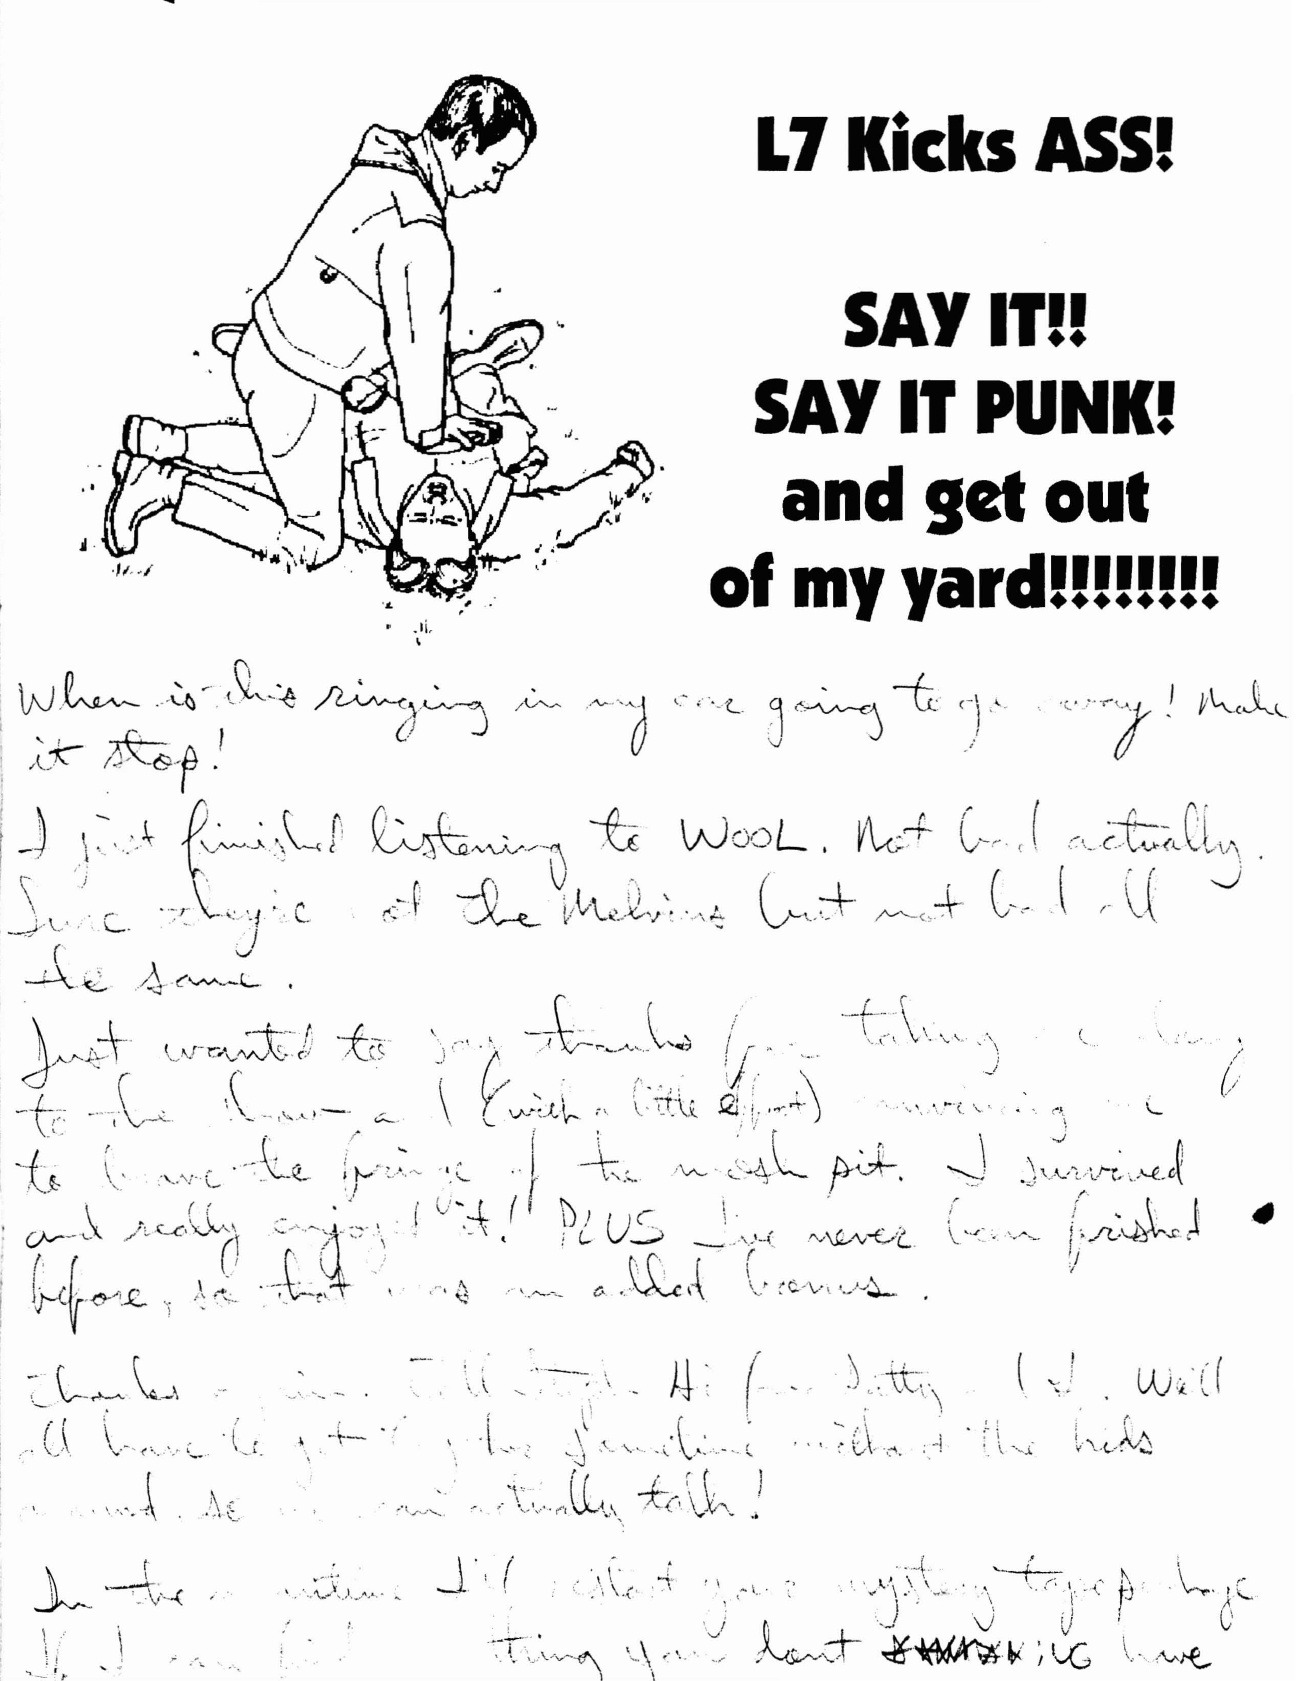 L7 Kicks ASS!
SAY IT!!
SAY IT PUNK!
and get out
of my yard!!!!!!!!
When is this ringing in my ear going to go away! Make
it stop!
I just finished listening to WOOL. Not bad actually.
Sure they're not the Melvins but not bad all
the same.
Just wanted to say thanks for taking me along
to the show and (with a little effort) convincing me
to leave the fringe of the mosh pit. I survived
and really enjoyed it! PLUS I've never been frisked
before, so that was an added bonus.
Thanks again. Tell Hi from Patty and I. We'll
all have to get together sometime without the kids
around so we can actually talk!
In the meantime I'll restart your mystery tape package
If I can find thing you dont have